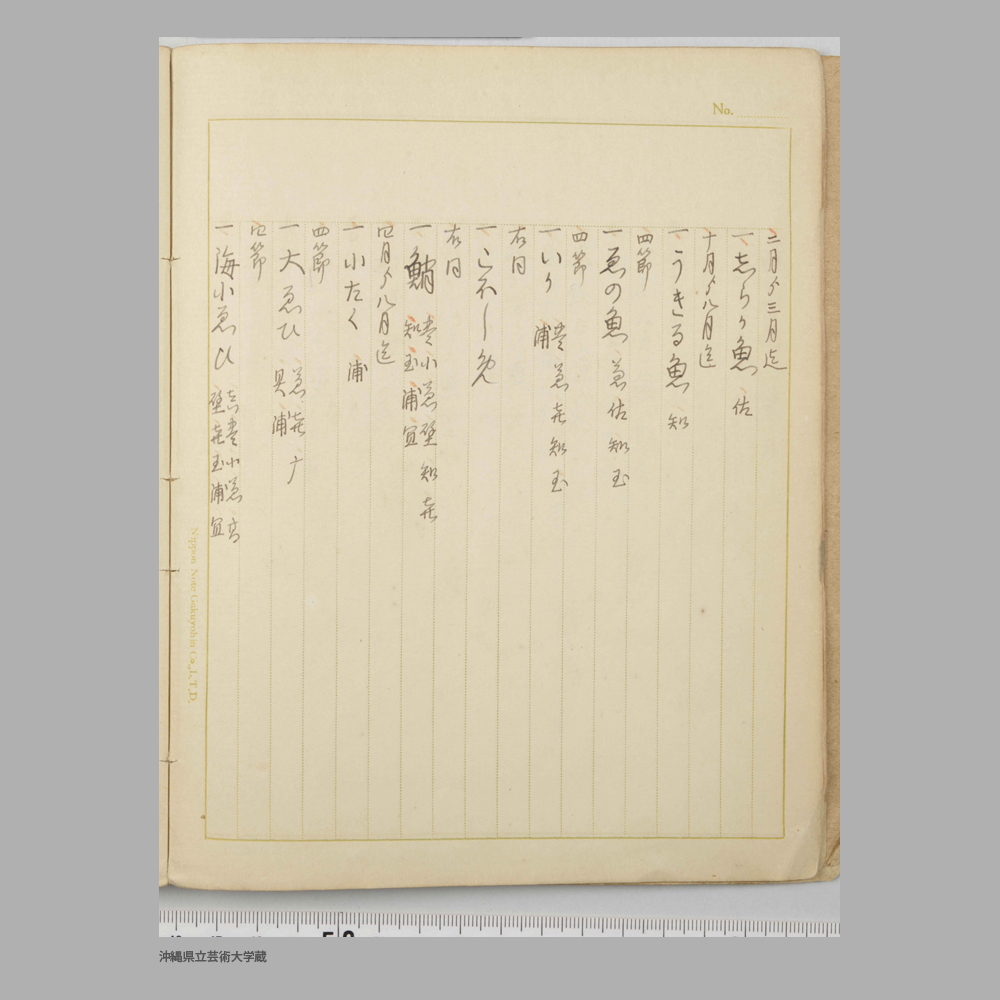 No.
二月ゟ三月迄
一志らか魚 佐
十月ゟ八月迄
一うきる魚 知
四節
一ゑの魚 善佐知玉
四節
一いか 善㐂知玉
浦
右同
一こふしめ
右同
一鮹 小善壁知㐂
知玉浦宜
四月ゟ八月迄
一小たく 浦
四節
一大ゑひ 善㐂
具浦
四節
一海小ゑひ 小善
壁㐂玉浦宜
Nippon Note Gakuyohin Co., L.T.D.
沖縄県立芸術大学蔵